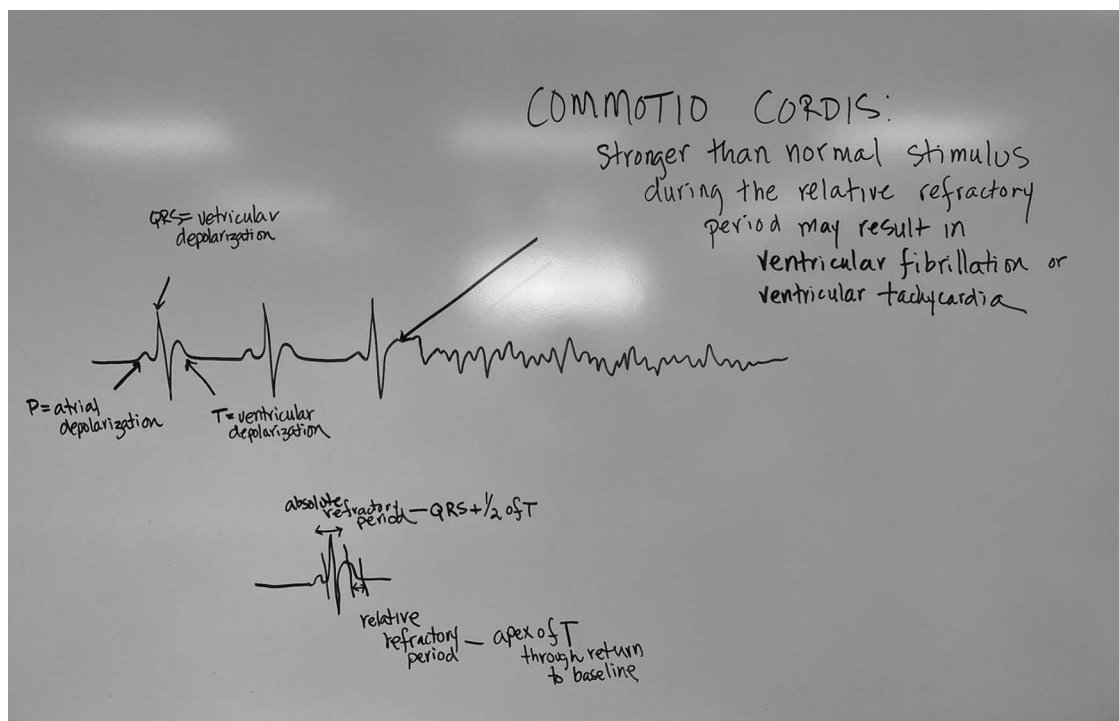 COMMOTIO CORDIS:
Stronger than normal stimulus
during the relative refractory
period may result in
ventricular fibrillation or
ventricular tachycardia
QRS= vetricular
depolarization
P= atrial
depolarization
T= ventricular
depolarization
absolute
refractory
period — QRS + 1/2 of T
relative
refractory
period — apex of T
through return
to baseline